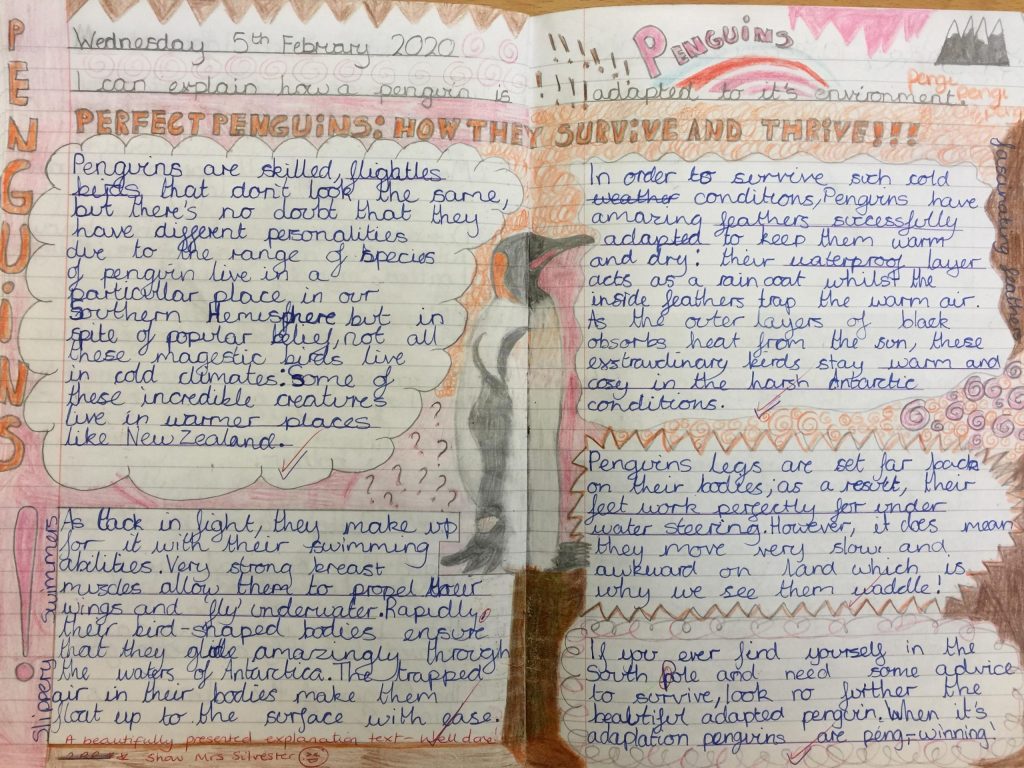 PENGUINS
Wednesday 5th February 2020
PENGUINS
I can explain how a penguin is adapted to it's environment.
PERFECT PENGUINS: HOW THEY SURVIVE AND THRIVE!!!
Penguins are skilled, flightles
birds that don't look the same,
but there's no doubt that they
have different personalities
due to the range of species
of penguin live in a
particular place in our
Southern Hemisphere but in
spite of popular belief, not all
these magestic birds live
in cold climates: some of
these incredible creatures
live in warmer places
like New Zealand.
Slippery Swimmers
As lack in fight, they make up
for it with their swimming
abilities. Very strong breast
muscles allow them to propel their
wings and fly underwater. Rapidly
their bird-shaped bodies ensure
that they glide amazingly through
the waters of Antarctica. The trapped
air in their bodies make them
float up to the surface with ease.
A beautifully presented explanation text - Well done!
Show Mrs Silvester
In order to survive such cold
weather conditions, Penguins have
amazing feathers successfully
adapted to keep them warm
and dry: their waterproof layer
acts as a rain coat whilst the
inside feathers trap the warm air.
As the outer layers of black
absorbs heat from the sun, these
exstraurdinary birds stay warm and
cosy in the harsh Antarctic
conditions.
Penguins legs are set far back
on their bodies; as a result, their
feet work percectly for under
water steering. However, it does mean
they move very slow and
awkward on land which is
why we see them waddle!
If you ever find yourself in the
South Pole and need some advice
to survive, look no further the
beautiful adapted penguin. When it's
adaption penguins are peng-winning!